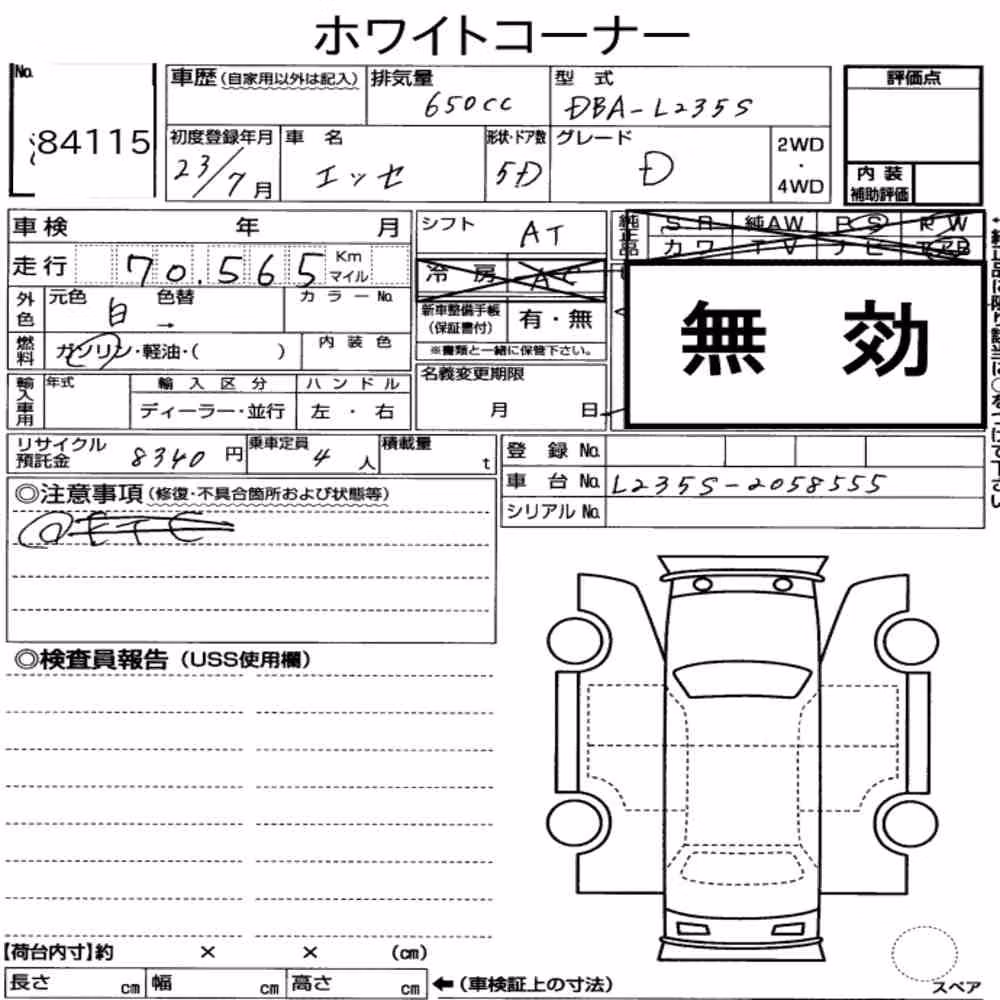 ホワイトコーナー
No.
84115
車歴(自家用以外は記入)
排気量
650cc
型式
DBA-L235S
評価点
初度登録年月
23/7月
車名
エッセ
形状・ドア数
5D
グレード
D
2WD
・
4WD
内装
補助評価
車検 年 月
シフト
AT
純正品
SR 純AW PS PW
カワ TV ナビ エアB
走行 70.565 Km
マイル
冷房 AC
外色
元色 色替 カラーNo.
白 →
新車整備手帳
(保証書付)
有・無
※書類と一緒に保管下さい。
無効
燃料
ガソリン・軽油・( )
内装色
輸入車用
年式
輸入区分
ハンドル
ディーラー・並行
左・右
名義変更期限
月 日
リサイクル
預託金
8340円
乗車定員
4人
積載量
t
登録No.
車台No. L235S-2058555
シリアルNo.
◎注意事項(修復・不具合箇所および状態等)
ETC
◎検査員報告(USS使用欄)
【荷台内寸】約 × × (cm)
長さ cm 幅 cm 高さ cm ←(車検証上の寸法)
スペア